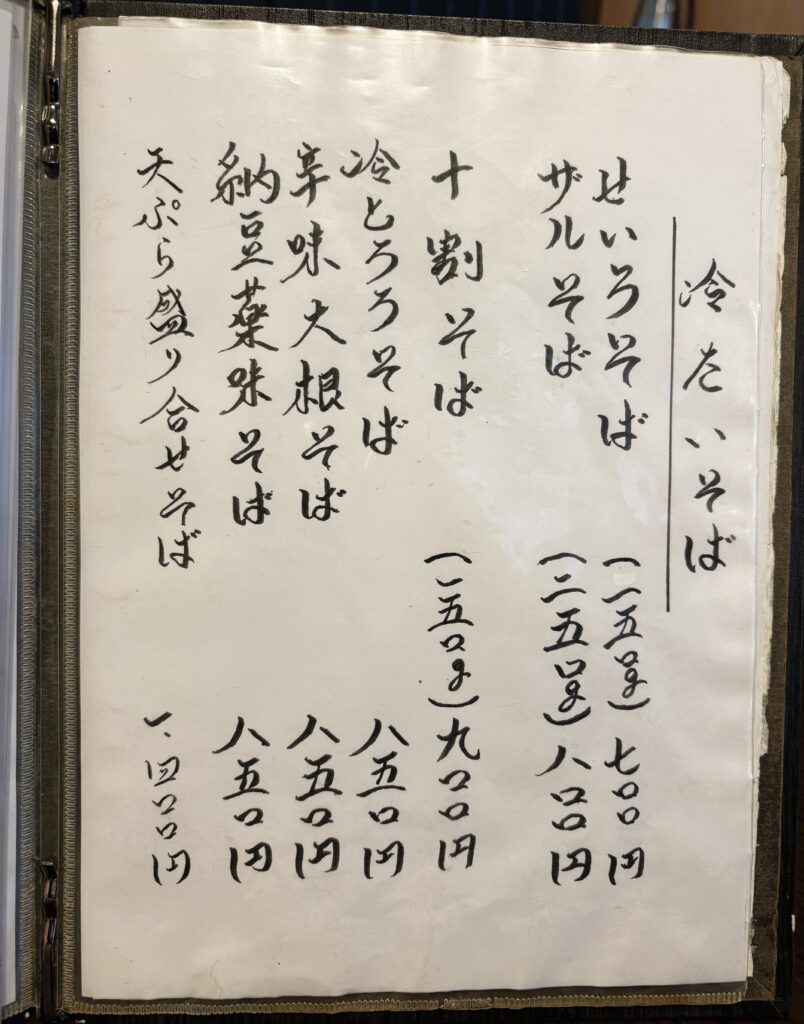 冷たいそば
せいろそば (一五〇g) 七〇〇円
ザルそば (二五〇g) 八〇〇円
十割そば (一五〇g) 九〇〇円
冷とろろそば 八五〇円
辛味大根そば 八五〇円
納豆薬味そば 八五〇円
天ぷら盛り合せそば 一、四〇〇円